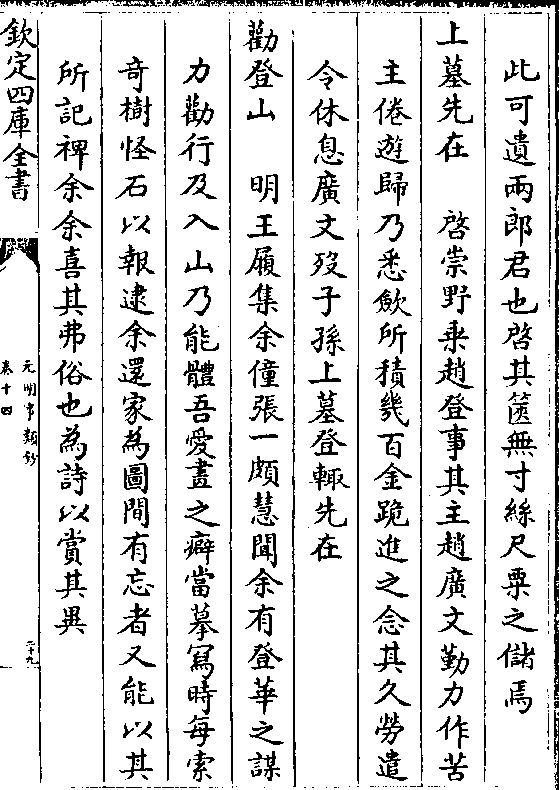 此可遺兩郎君也啓其篋無寸絲尺粟之儲焉
上墓先在　啓崇野乘趙登事其主趙廣文勤力作苦
主倦遊歸乃悉斂所積幾百金跪進之念其久勞遣
令休息廣文歿子孫上墓登輙先在
勸登山　明王履集余僮張一頗慧聞余有登華之謀
力勸行及入山乃能體吾愛畫之癖當摹寫時每索
竒樹怪石以報逮余還家為圖間有忘者又能以其
所記裨余余喜其弗俗也為詩以賞其異
欽定四庫全書
元明事類鈔
卷十四
二十九